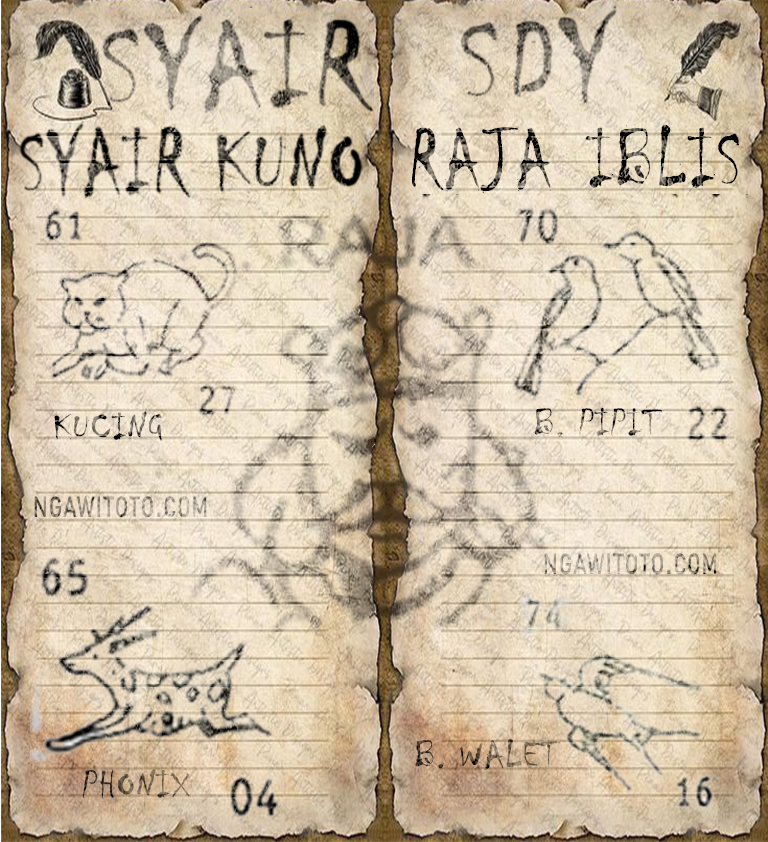 SYAIR SDY
SYAIR KUNO RAJA IBLIS
RAJA
61
27
KUCING
70
B. PIPIT 22
NGAWITOTO.COM
NGAWITOTO.COM
65
PHONIX 04
74
B. WALET
16